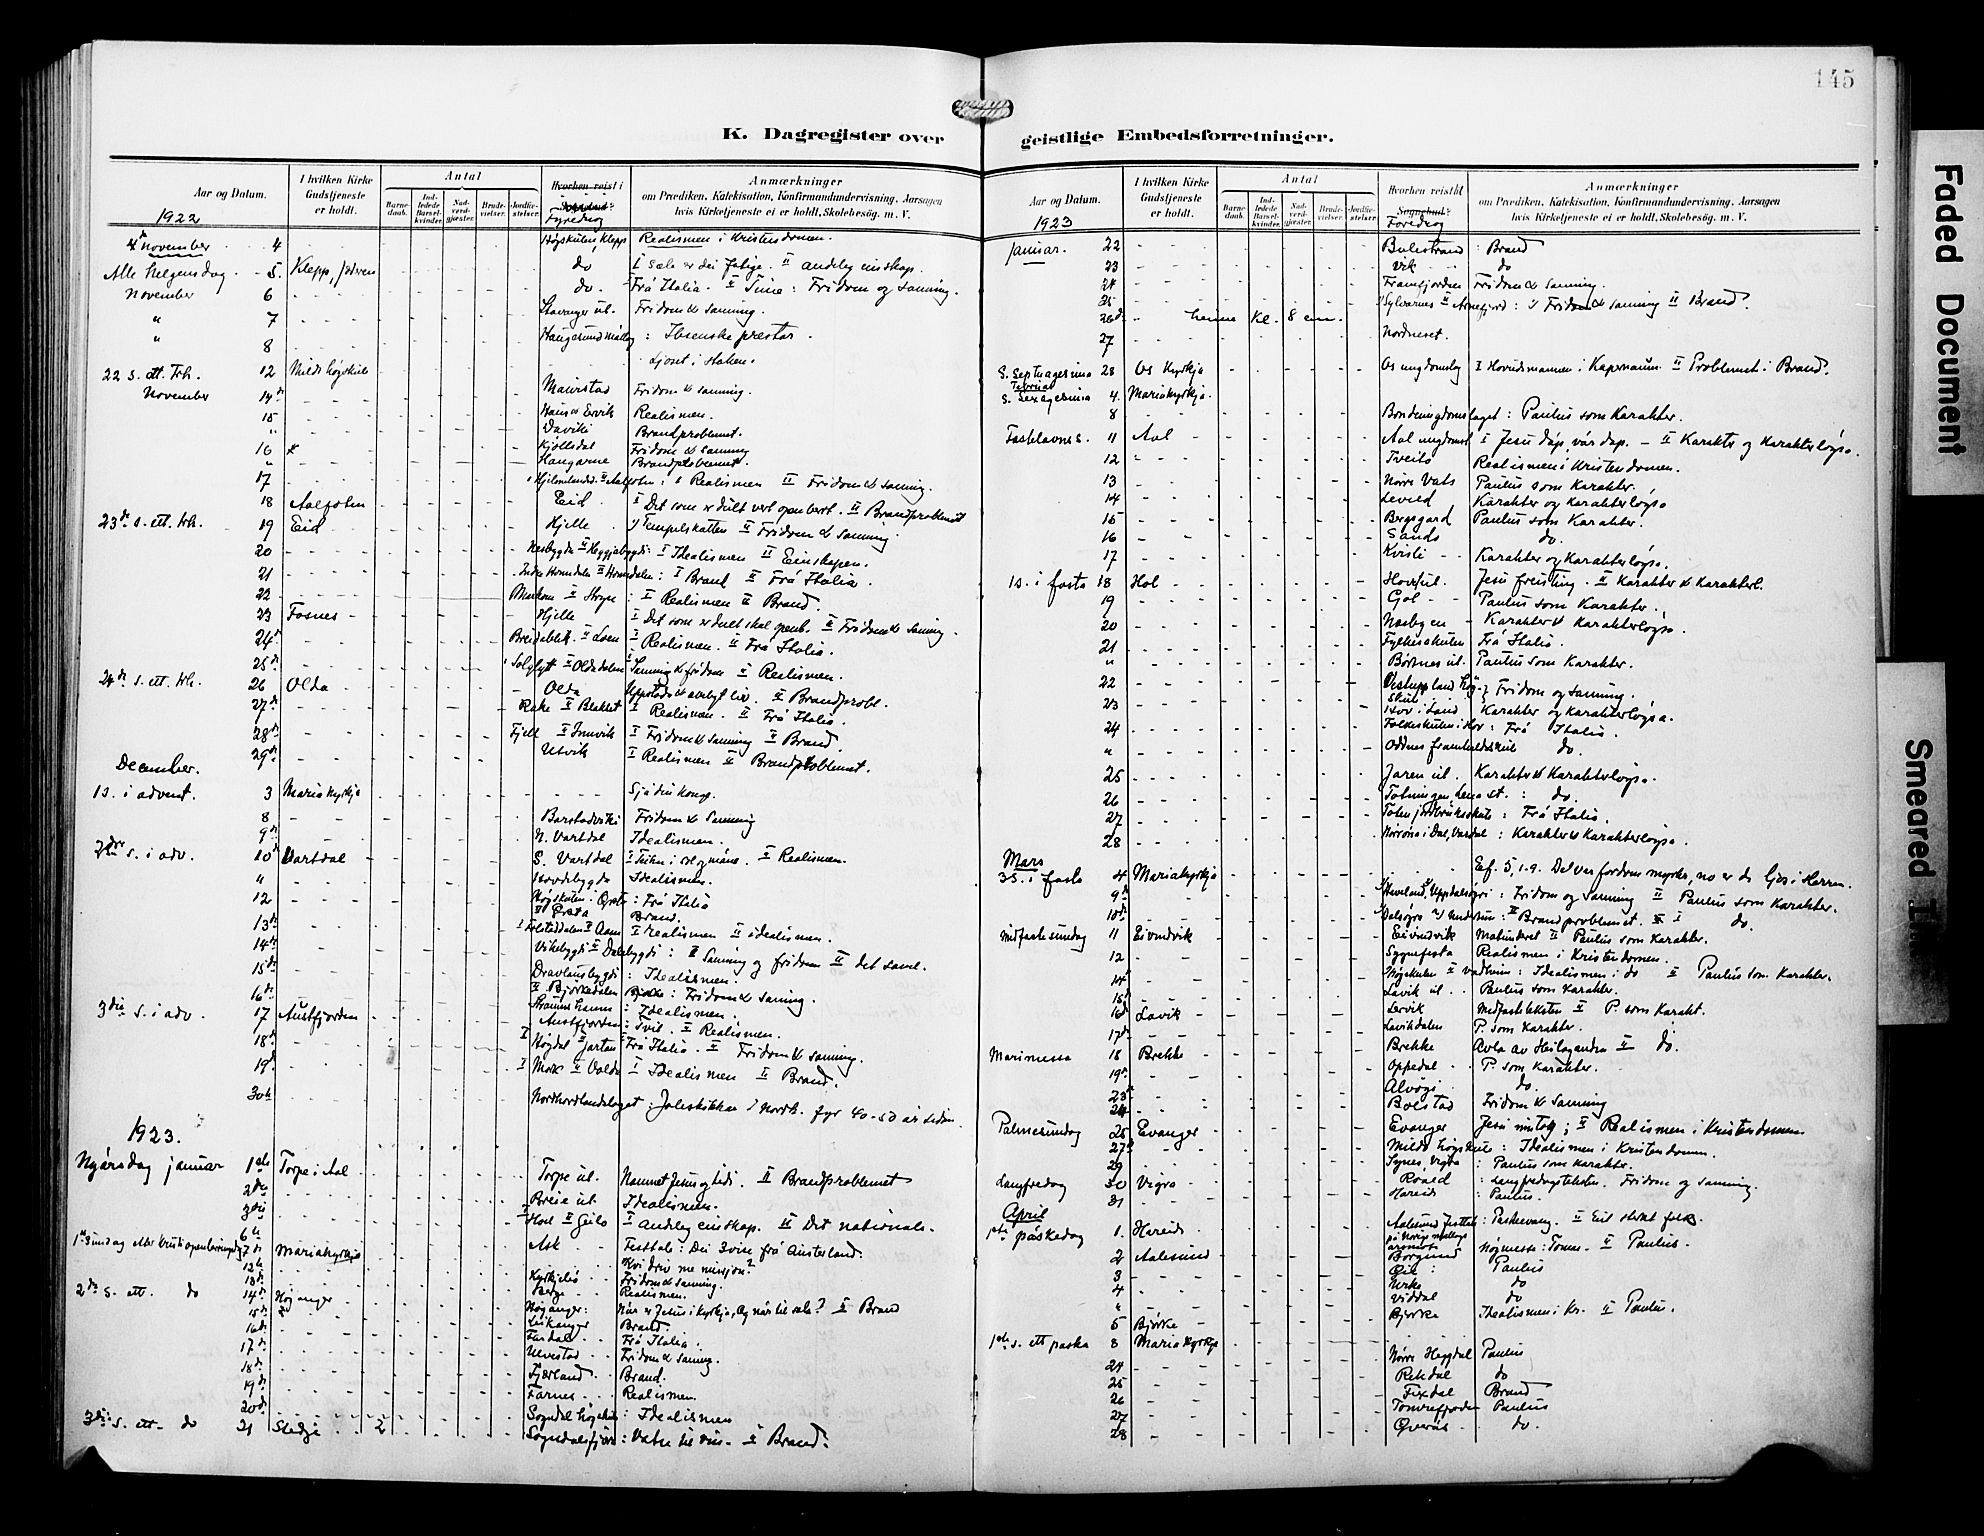 145
K. Dagregister over geistlige Embedsforretninger.
Aar og Datum.
I hvilken Kirke Gudstjeneste er holdt.
Antal
Barne-daab.
Ind-ledede Barsel-kvinder.
Nad-verd-gjæster.
Brude-vielser.
Jordfæ-stelser.
Hvorhen reist i
Fyredrag
Anmærkninger
om Prædiken, Katekisation, Konfirmandundervisning, Aarsagen
hvis Kirketjeneste ei er holdt, Skolebesøg, m. V.
1922
november 4 Høgskulen, Klepp Realismen i Kristendomen.
Alle helgensdag 5 Klepp, Jæren do I Sæle er dei fatige. II andeleg einskap.
November 6 do. Frå Italia. II Sume: Fridom og sanning.
" 7 Stavanger ul. Fridom & sanning.
" 8 Haugesund mållag: Ibsenske prestar.
Ljoset i staken.
22 s. ett. trh. 12 Milde høgskule
November 14de Maurstad Fridom & sanning.
15 Haus & Ervik Realismen.
" Daviki Brandproblemet.
16 Kjølsdal Fridom & sanning
" Haugarne Brandproblemet.
17 II Aalfoten: I Realismen II Fridom & sanning.
18 Aalfoten Eid I Det som er dult vert openbert. II Brandproblemet
23de s. ett. trh. 19 Eid Hjelle I Tempelskatten II Fridom & sanning.
20 Nesbygda II Heggjabygdi: I Idealismen II Einskapen.
21 Indre Horndalen II Horndalen: I Brand II Frå Italia.
22 II Stryn: I Realismen II Brand.
23 Fosnes Hjelle I Det som er dult skal openb. II Fridom & sanning.
24de Breidablik II Loen I Realismen. II Frå Italia.
25de Solglytt II Oldedalen I Sanning & fridom II Realismen.
24de s. ett. trh. 26 Olda Olda Uppstoda & ævelegt liv. II Brandprobl.
27de Rake II Blakset I Realismen. II Frå Italia.
28de Fjell II Innvik I Fridom & sanning II Brand.
29de Utvik I Realismen II Brandproblemet.
December.
1s. i advent. 3 Mariakyrkja Sjå din konge.
8 Barstadviki Fridom & Sanning
9de N. Vartdal Idealismen.
2dre s. i adv. 10de Vartdal S. Vartdal I Teikn i sol og måne. II Realismen.
" Hovdebygda Idealismen.
12 Høgskulen. Ørsta: Frå Italia
II Ørsta Brand.
13de I Follestaddalen II Aam I realismen II idealismen.
14de Vikebygdi II Dalebygdi: I Sanning og fridom II det same.
15de Dravlausbygdi: Idealismen.
16de II Bjørkedalen Bjørke: Fridom & sanning.
3die s. i adv. 17 Austfjorden Straumshamn: Idealismen.
Austfjorden: Tvil. II Realismen.
18de I Høgdal II Jartan I Frå Italia. II Fridom & sanning.
19de I Mork II Volda I Idealismen II Brand.
30te Nordhordlandslaget: Joleskikkar i Nordh. fyr 40-50 år sidan
1923.
Nyårsdag januar 1ste Torpe i Aal Torpe ul. Namnet Jesus og tidi. II Brandproblemet
2dre Breie ul. Idealismen.
3die I Hol II Geilo I andeleg einskap. II Det nationale.
6te Ask Festtale: Dei 3 vise frå Austerland.
1ste Sundag etter kristi openberringsdag 7de Mariakyrkja
12te Kvi driv me misjon?
13de Kyrkjebø Fridom & sanning.
2dre s. ett. do 14de Høyanger Berge Realismen.
15de Høyanger: Når er Jesus i kyrkja, Og når til sals? II Brand
16de Leikanger Brand.
17de Fardal Frå Italia.
Ulvestad Fridom & sanning.
18de Fjærland Brand.
19de Farnes Realismen.
20de Sogndal høgskule: Idealismen
3die s. ett. do 21 Stedje 2 Sogndalsfjøra: Vatn til vin. II Brand:
Aar og Datum.
I hvilken Kirke Gudstjeneste er holdt.
Antal
Barne-daab.
Ind-ledede Barsel-kvinder.
Nad-verd-gjæster.
Brude-vielser.
Jordfæ-stelser.
Hvorhen reist til Sognebud.
Foredrag
Anmærkninger
om Prædiken, Katekisation, Konfirmandundervisning, Aarsagen
hvis Kirketjeneste ei er holdt, Skolebesøg, m. V.
1923
Januar. 22 Balestrand: Brand
23 Vik do
24 Framfjorden Fridom & sanning.
25 Sylvarnes II Arnefjord: I Fridom & sanning II Brand.
26de heime kl. 8 em.
27 Nordneset.
S. Septuagesima 28 Os kyrkja Os ungdomslag I Hovudsmannen i Kapernaum II Problemet i Brand.
Februar
S. Sexagesima 4. Mariakyrkja.
8 Bondeungdomslaget: Paulus som Karakter.
Fastelavns s. 11 Aal Aal ungdomsl I Jesu dåp, vår dåp. – II Karakter og karakterløysa.
12 Tveito Realismen i Kristendomen.
13 Nørre Vats Paulus som karakter.
14 Leveld Karakter og karakterløysa
15 Bergsgard Paulus som Karakter.
16 Sando do.
17 Kvisli Karakter og Karakterløysa.
1s. i fasta 18 Hol Hovsful. Jesu freisting. II Karakter & Karakterl.
19 Gol Paulus som Karakter.
20 Nesbyen Karakter & Karakterløysa.
21 Fylkesskulen Frå Italia.
" Børtnes ul. Paulus som Karakter.
22 Vestuppland høgskul: Fridom og sanning.
23 Hov i Land Karakter og karakterløysa.
24 Folkeskulen i Hov: Frå Italia.
" Oddnes framhaldskule do.
25 Jaren ul. Karakter & Karakterløysa.
26 Totningen Lena st.: do.
27 Toten jordbruksskule: Frå Italia.
28 Nørrøna i Dal, Værdal: Karakter & karakterløysa.
Mars
3s. i fasta 4 Mariakyrkja Ef. 5, 1-9. De var fordom myrke, no er de ljos i Herren.
9de Uppdalsøyri: Fridom og sanning II Paulus som Karakter.
10de Dalsøyra: II Brandproblemet. I do.
Midfastesundag 11 Eivindvik Eivindvik Matunderet II Paulus som karakter.
12 Sygnefesta Realismen i Kristendomen.
14 Høgskulen II Vadheim: Idealismen i do II Paulus som Karakter.
15de Lavik ul. Paulus som Karakter.
16de Lavik Lervik Midfasteteksten II P. som Karakt.
17de Lavikdalen P. som Karakter.
Marimessa 18 Brekke Brekke Avla av Heilaganden II do.
19de Oppedal P. som karakter.
23de Alvøyi do.
24 Bolstad Fridom & Sanning
Palmesundag 25 Evanger Evanger Jesu inntog; II Realismen i Kristendomen
27de Milde høgskule: Idealismen i Kristendomen.
29 Synes, Vigra: Paulus som karakter.
Langfredag 30 Vigra Roald: Langfredagsteksten. Fridom og sanning.
31 Hareid: Paulus.
April
1ste påskedag 1. Hareid Aalesund Festtale: Paskevang. II Eit sterkt folk.
på Noregs mållags årsmøte
2 Aalesund Borgund Høgmessa: Tomas. II Paulus.
3 Øie: Paulus
4 Urke do
" Viddal do
5 Bjørke Bjørke Idealismen i Kr. II Paulus.
1ste s. ett paska 8 Mariakyrkja
24 Nørre Heggdal Paulus
25 Rekdal do
26 Fixdal Brand
27 Tomrefjorden Paulus
28 Øverås do.
Faded Document
Smeared